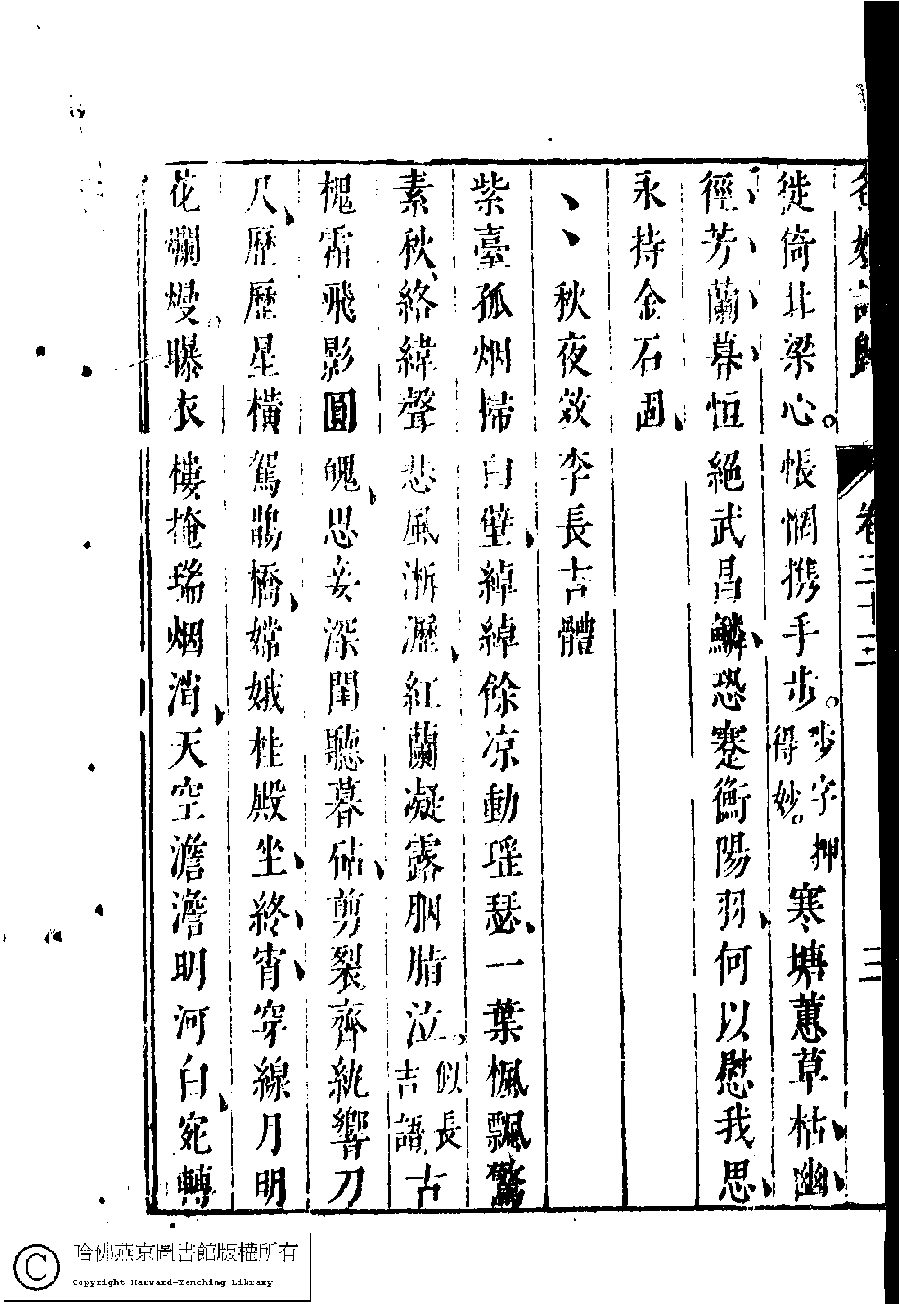 名媛詩歸 卷三十三 三
徙倚北梁心。悵惘携手步。步字押得妙。寒塘蕙草枯幽
徑芳蘭暮恒絕武昌鱗恐蹇衡陽羽何以慰我思
永持金石固
秋夜效李長吉體
紫臺孤烟掃白壁綽綽餘凉動瑶瑟一葉楓飄驚
素秋絡緯聲悲風淅瀝紅蘭凝露胭脂泣。似長吉語古
槐霜飛影圓魄思妾深閨聽暮砧剪裂齊紈響刀
尺歷歷星橫駕鵲橋嫦娥桂殿坐終宵穿線月明
花爛熳。曝衣樓掩瑞烟消天空澹澹明河白宛轉
哈佛燕京圖書館版權所有
Copyright Harvard-Yenching Library